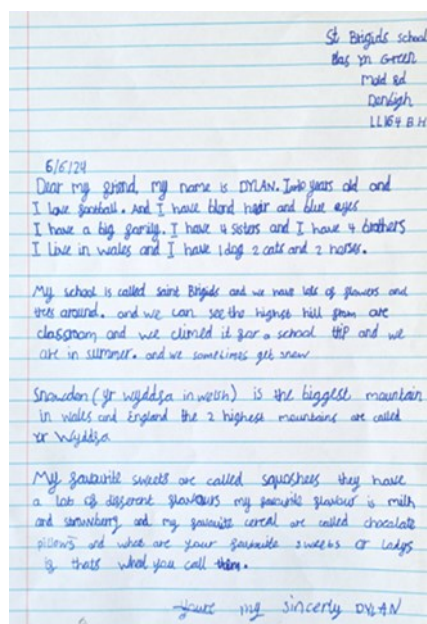 St Brigids school
Plas yn Green
Mold Rd
Denbigh
LL164BH
6/6/24
Dear my friend, my name is DYLAN. Im 10 years old and
I love football. And I have blond hair and blue eyes
I have a big family. I have 4 sisters and I have 4 brothers
I live in wales and I have 1 dog 2 cats and 2 horses.
My school is called saint Brigids and we have lots of flowers and
trees around. and we can see the highest hill from are
classroom and we climed it for a school trip and we
are in summer. and we sometimes get snow
Snowdon (yr wyddfa in welsh) is the biggest mountain
in wales and England the 2 highest mountains are called
Yr Wyddfa
My favourite sweets are called squashees they have
a lot of different flavours my favourite flavour is milk
and strawberry and my favourite cereal are called chocolate
pillows and what are your favourite sweets or
if thats what you call them.
yours my sincerly DYLAN